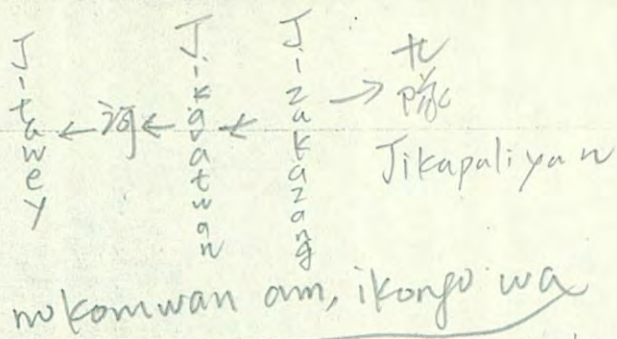 Jitawey ← 河 ← Jikgatwan ← Jizakazang → 七隊
Jikapaliyan
nokomwan am, ikongo wa